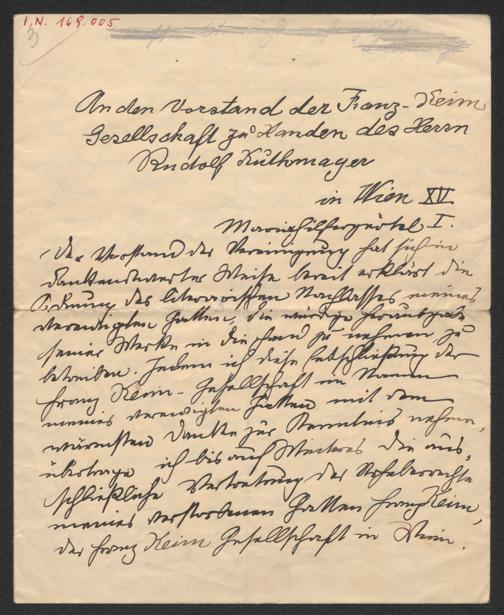 I.N. 169.005
An den Vorstand der Franz-Keim
Gesellschaft zu Handen des Herrn
Rudolf Kuthmayer
in Wien XV
Mariahilfergürtel I.
Der Vorstand der Vereinigung hat sich in
dankenswerter Weise bereit erklärt die
Ordnung des literarischen Nachlasses meines
verewigten Gatten, die würdige Herausgabe
seiner Werke in die Hand zu nehmen zu
betreiben. Indem ich diese Entschließung der
Franz Keim-Gesellschaft im Namen
meines verewigten Gatten mit dem
wärmsten Danke zur Kenntnis nehme,
übertrage ich bis auf Weiteres die aus-
schließliche Vertretung der Urheberrechte
meines verstorbenen Gatten Franz Keim,
der Franz Keim Gesellschaft in Wien.